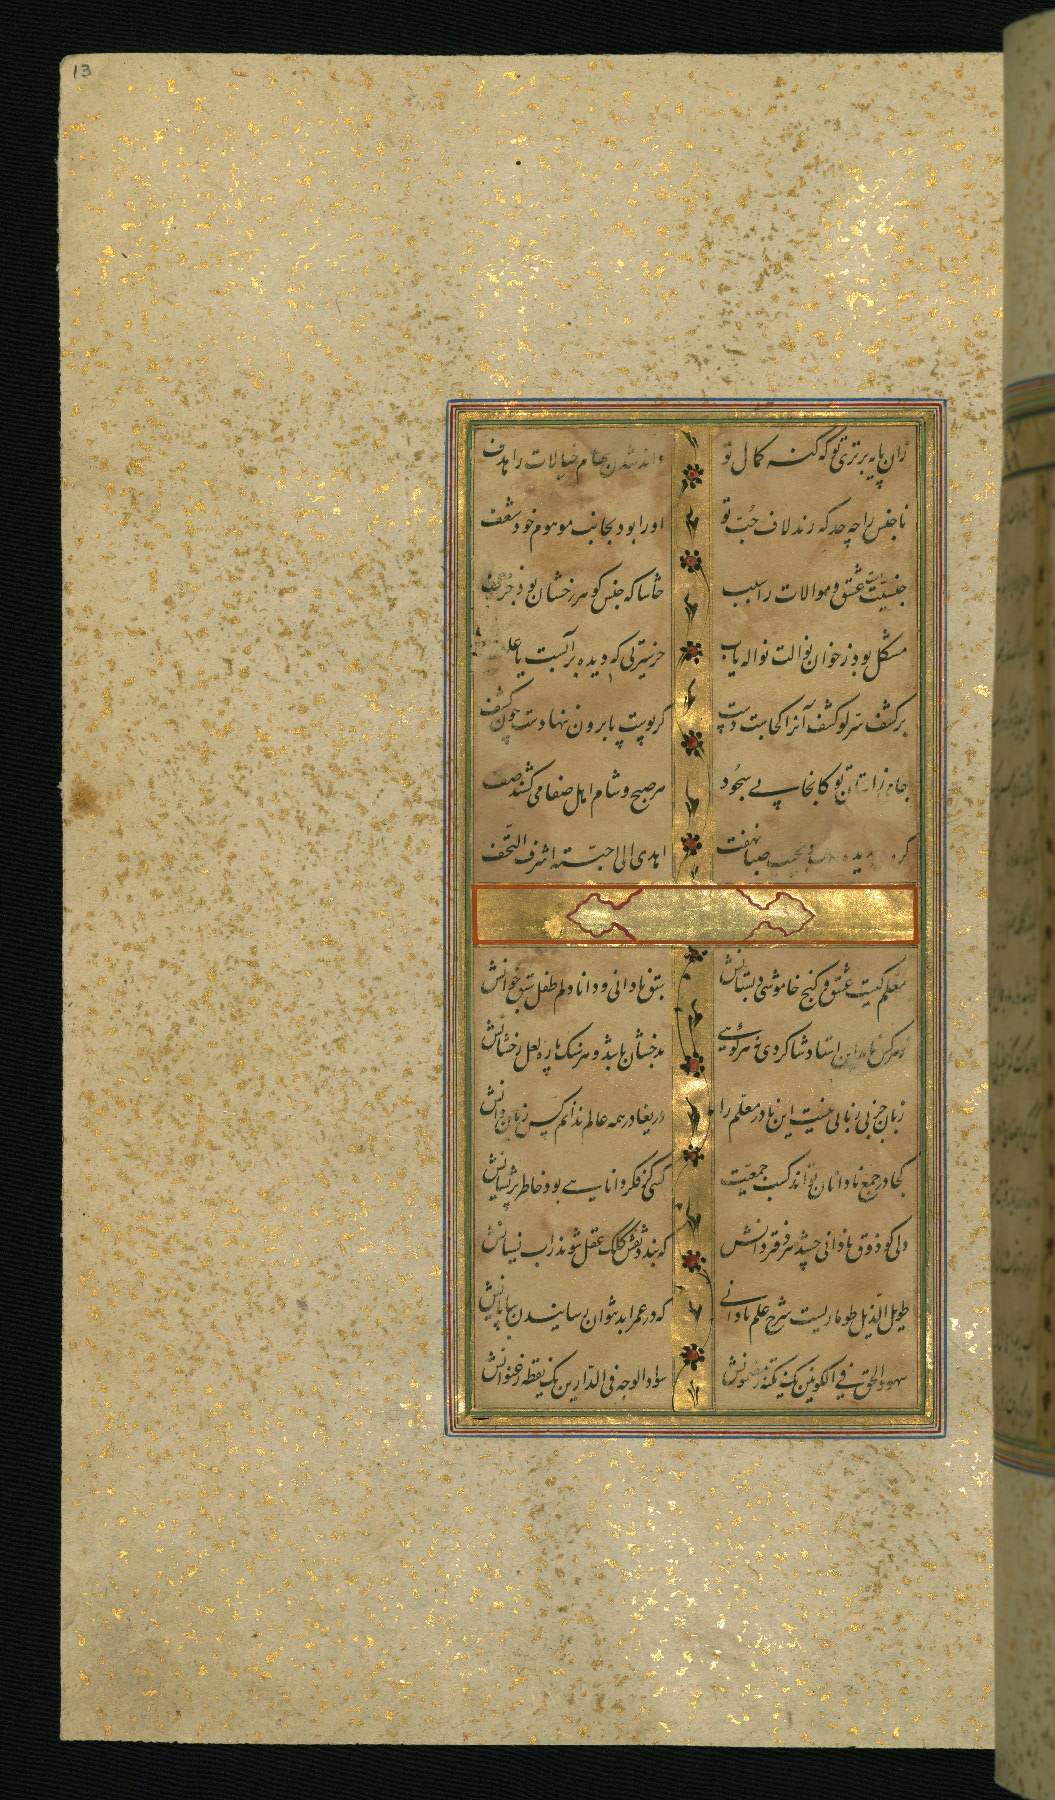 13
زان پایه برتری تو که کنه کمال تو
داند شدن سهام خیالات را هدف
ناجنس را چه حد که زند لاف حب تو
او را بود بجانب موهوم خود شعف
جنسیتست عشق و موالات را سبب
حاشا که جنس گوهر رخشان بود خزف
مشکل بود ز خوان نوالت نواله یاب
خر سیرتی که دیده بر آبست یا علف
بر کشف سر لو کشف آنرا کجاست دست
کز پوست پا برون ننهادست چون کشف
جامی ز آستان تو کانجا پی سجود
هر صبح و شام اهل صفا می کشند صف
کرد دیده و بجیب صبا نهفت
اهدی الی احبته اشرف التحف
معلم کیست عشق و کنج خاموشی دبستانش
سبق نادانی و دانا دلم طفل سبق خوانش
ز هر کس ناید این استاد شاگردی نه هر کوهی
بدخشان باشد و هر سنگ پاره لعل رخشانش
زبان جز بی زبانی نیست این نادر معلم را
دریغا در همه عالم ندانم کس زبان دانش
کجا در جمع نادانان تواند کسب جمعیت
کسی کز فکر دانایی بود خاطر پریشانش
دلی کو ذوق نادانی چشید هر دفتر دانش
که بندد نقش کلک عقل شوید ز آب نسیانش
طویل الذیل طوماریست شرح علم نادانی
که در عمر ابد نتوان رسانیدن بپایانش
شهود الحق فی الکونین یک نکته ز مضمونش
سواد الوجه فی الدارین یک نقطه ز عنوانش